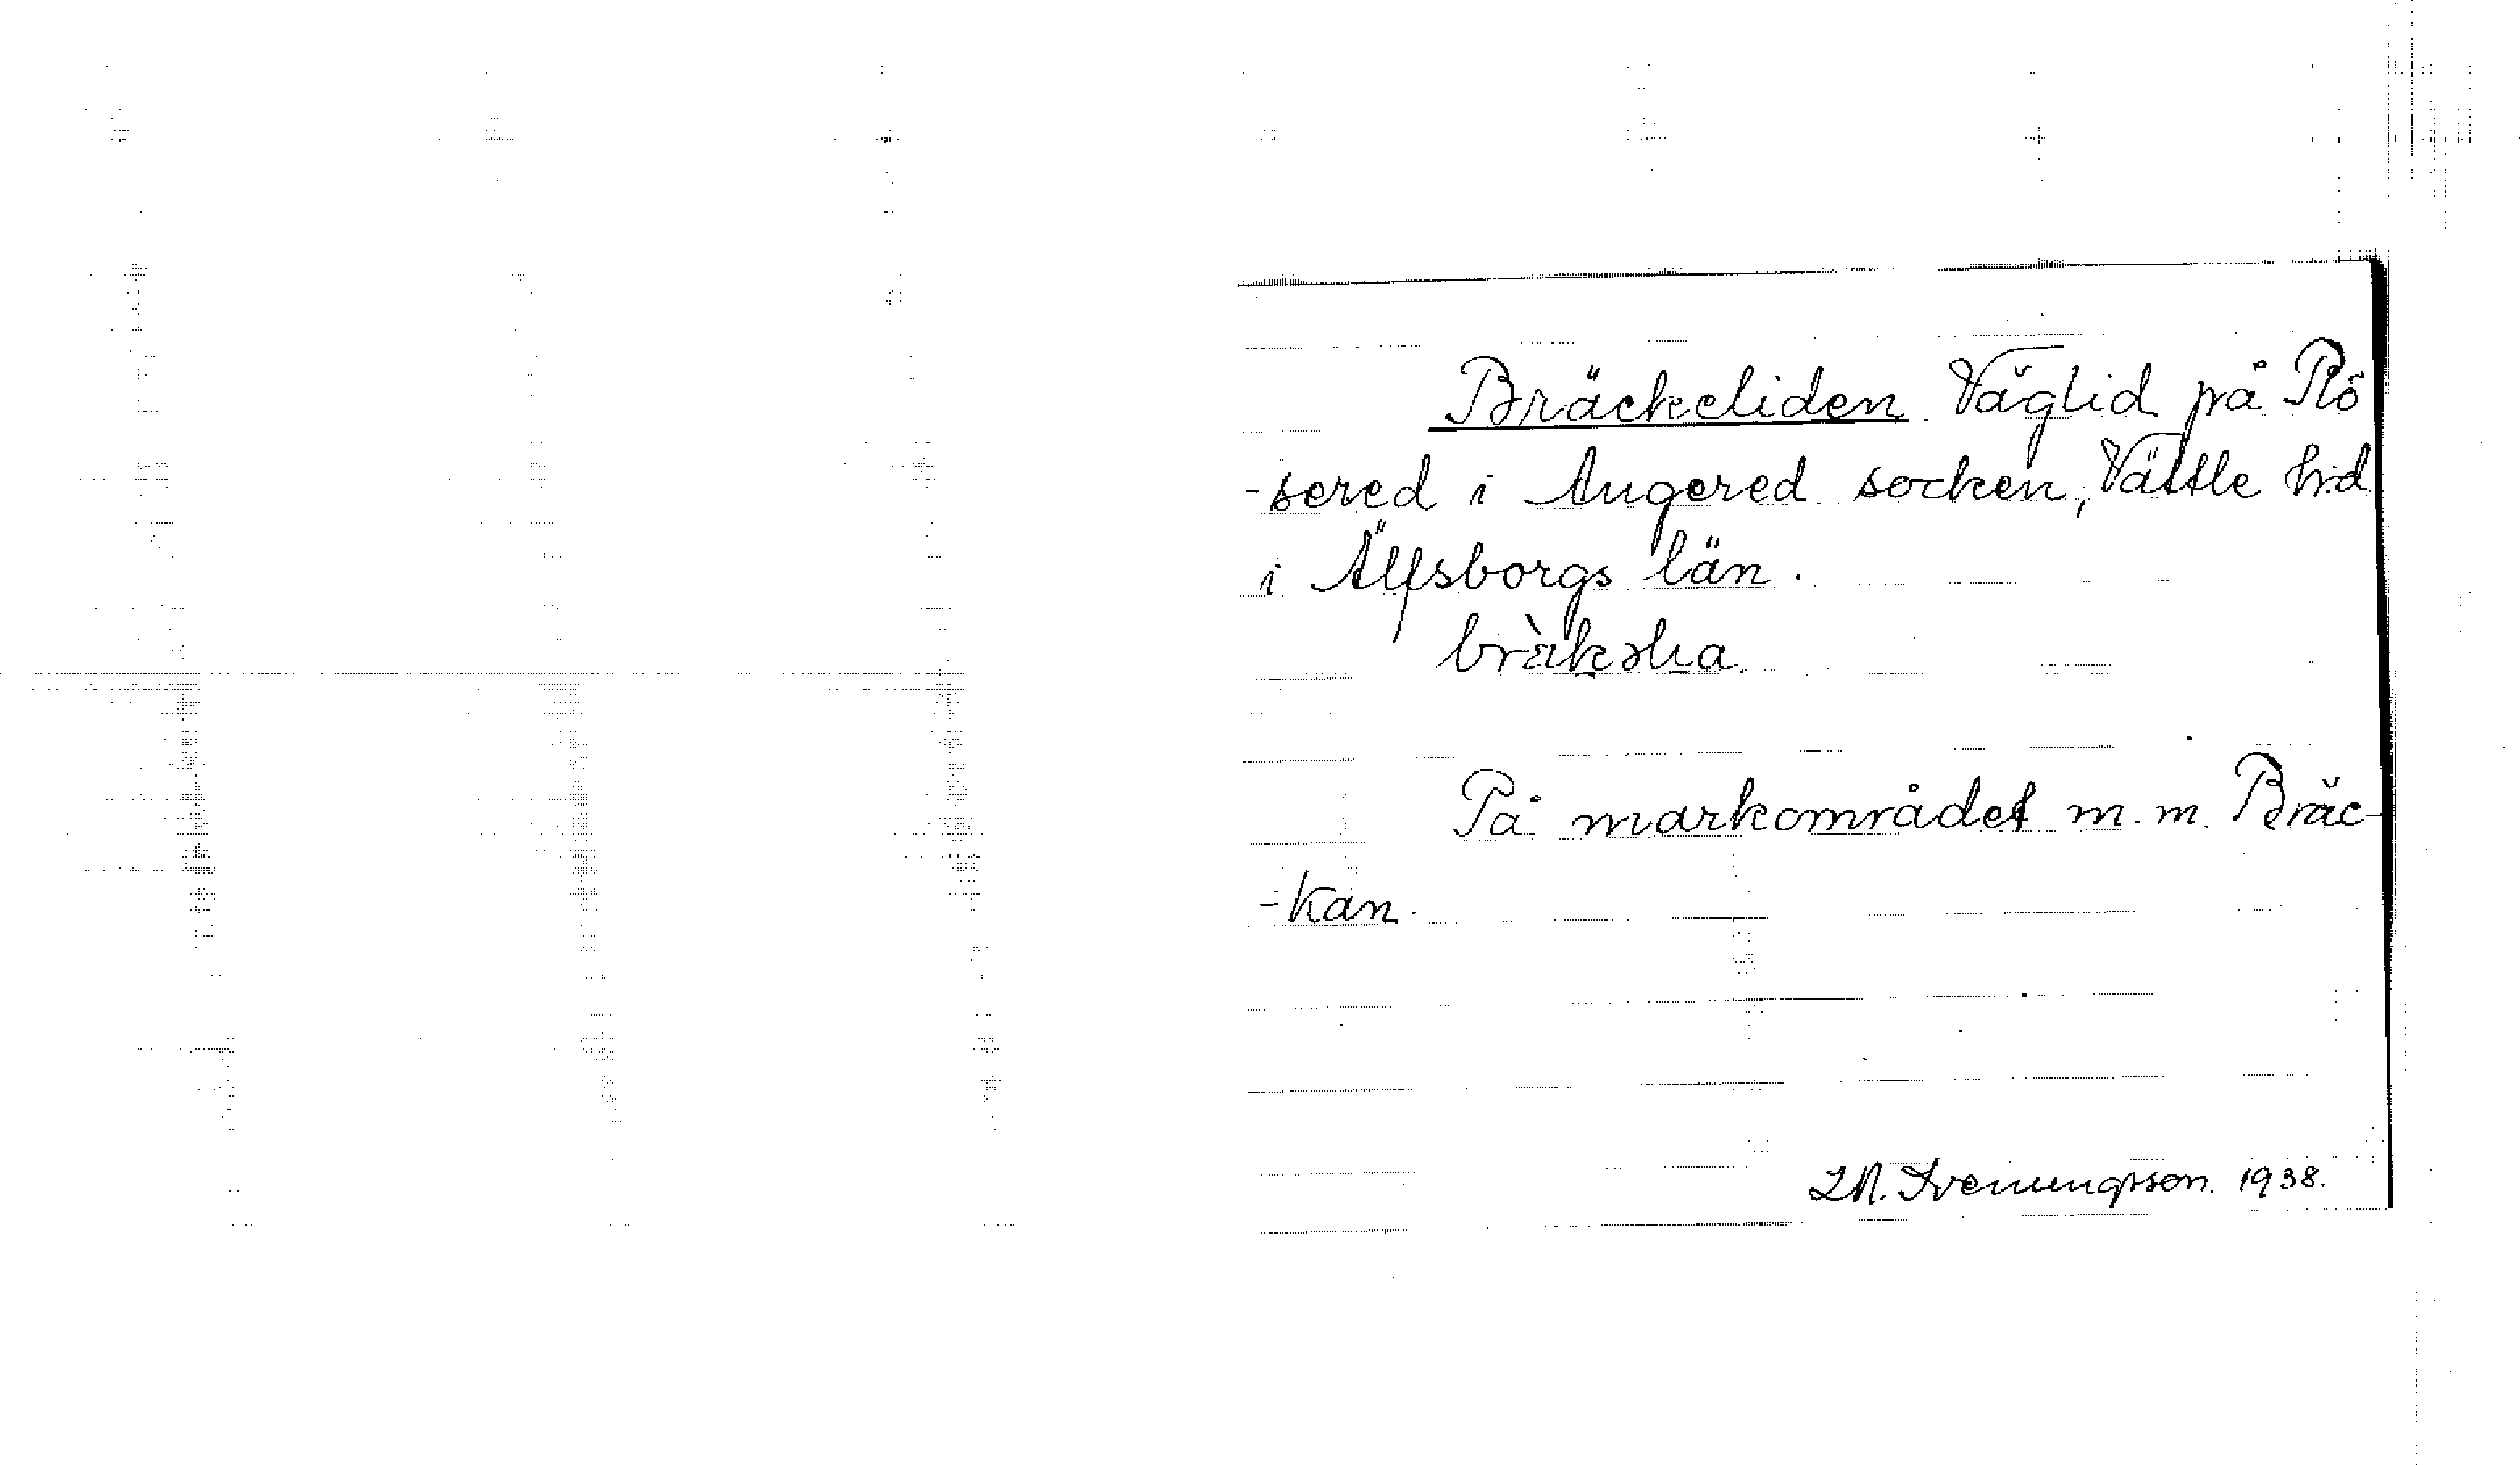 Bräckeliden. Väglid på Rö
-sered i Angered socken, Vättle hd
i Älfsborgs län.
På markområdet m.m. Bräc-
-kan.
1938.